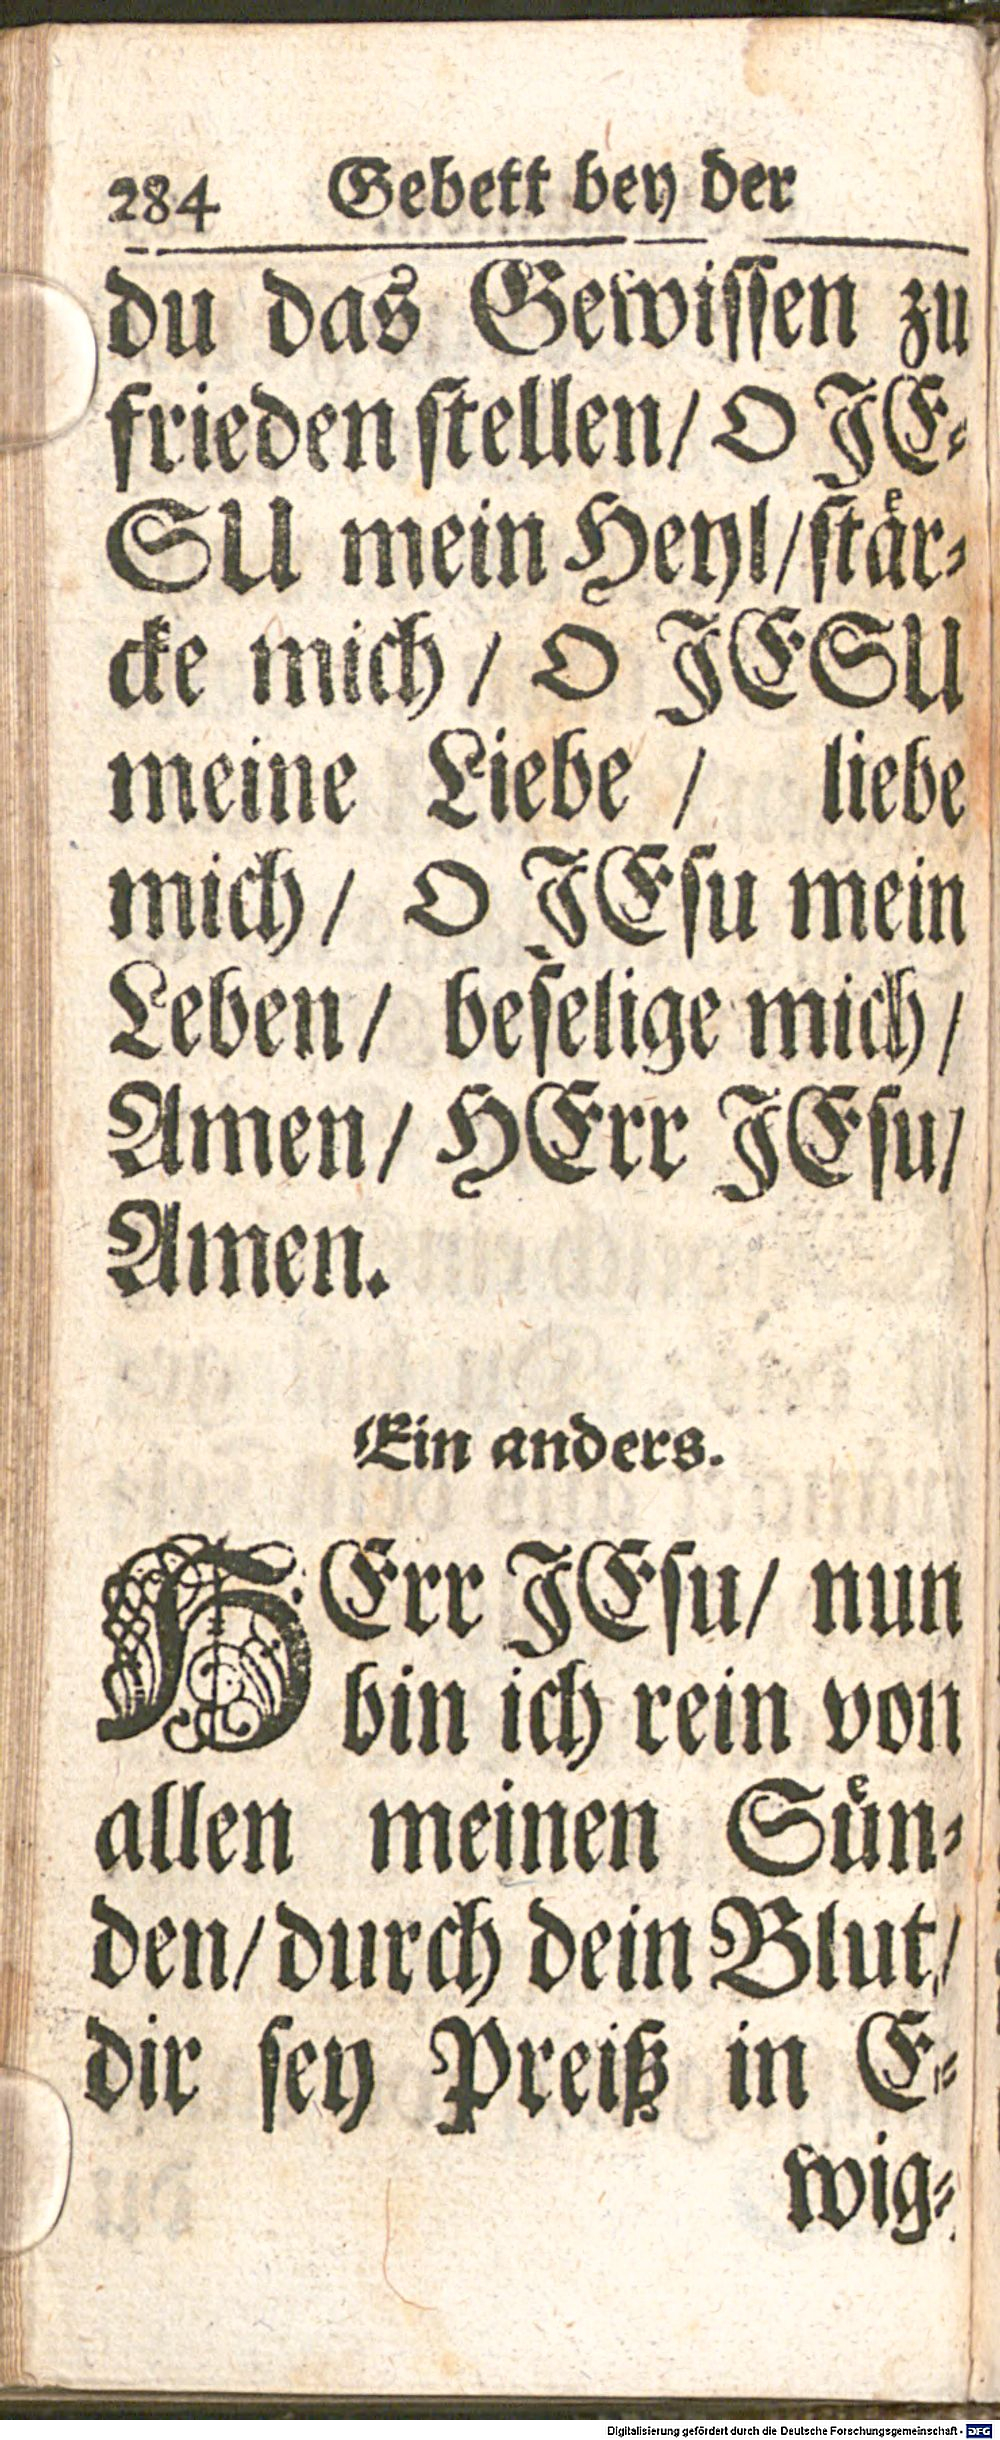 284 Gebett bey der
du das Gewissen zu
frieden stellen/ O JE⸗
SU mein Heyl/ staͤr⸗
cke mich / O JESU
meine Liebe / liebe
mich/ O JEsu mein
Leben/ beselige mich/
Amen/ HErr JEsu/
Amen.
Ein anders.
HErr JEsu/ nun
bin ich rein von
allen meinen Suͤn⸗
den/ durch dein Blut/
dir sey Preiß in E⸗
wig⸗
Digitalisierung gefördert durch die Deutsche Forschungsgemeinschaft - DFG